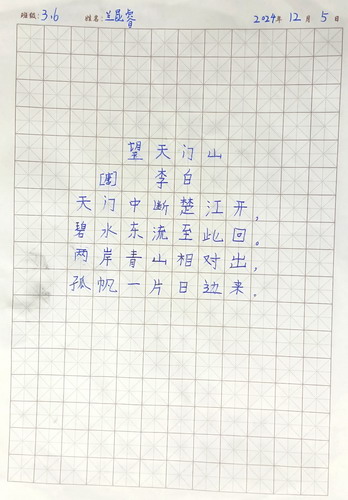 班级: 3.6 姓名: 兰晨睿 2024年 12月 5日
望天门山
[唐] 李白
天门中断楚江开,
碧水东流至此回。
两岸青山相对出,
孤帆一片日边来。